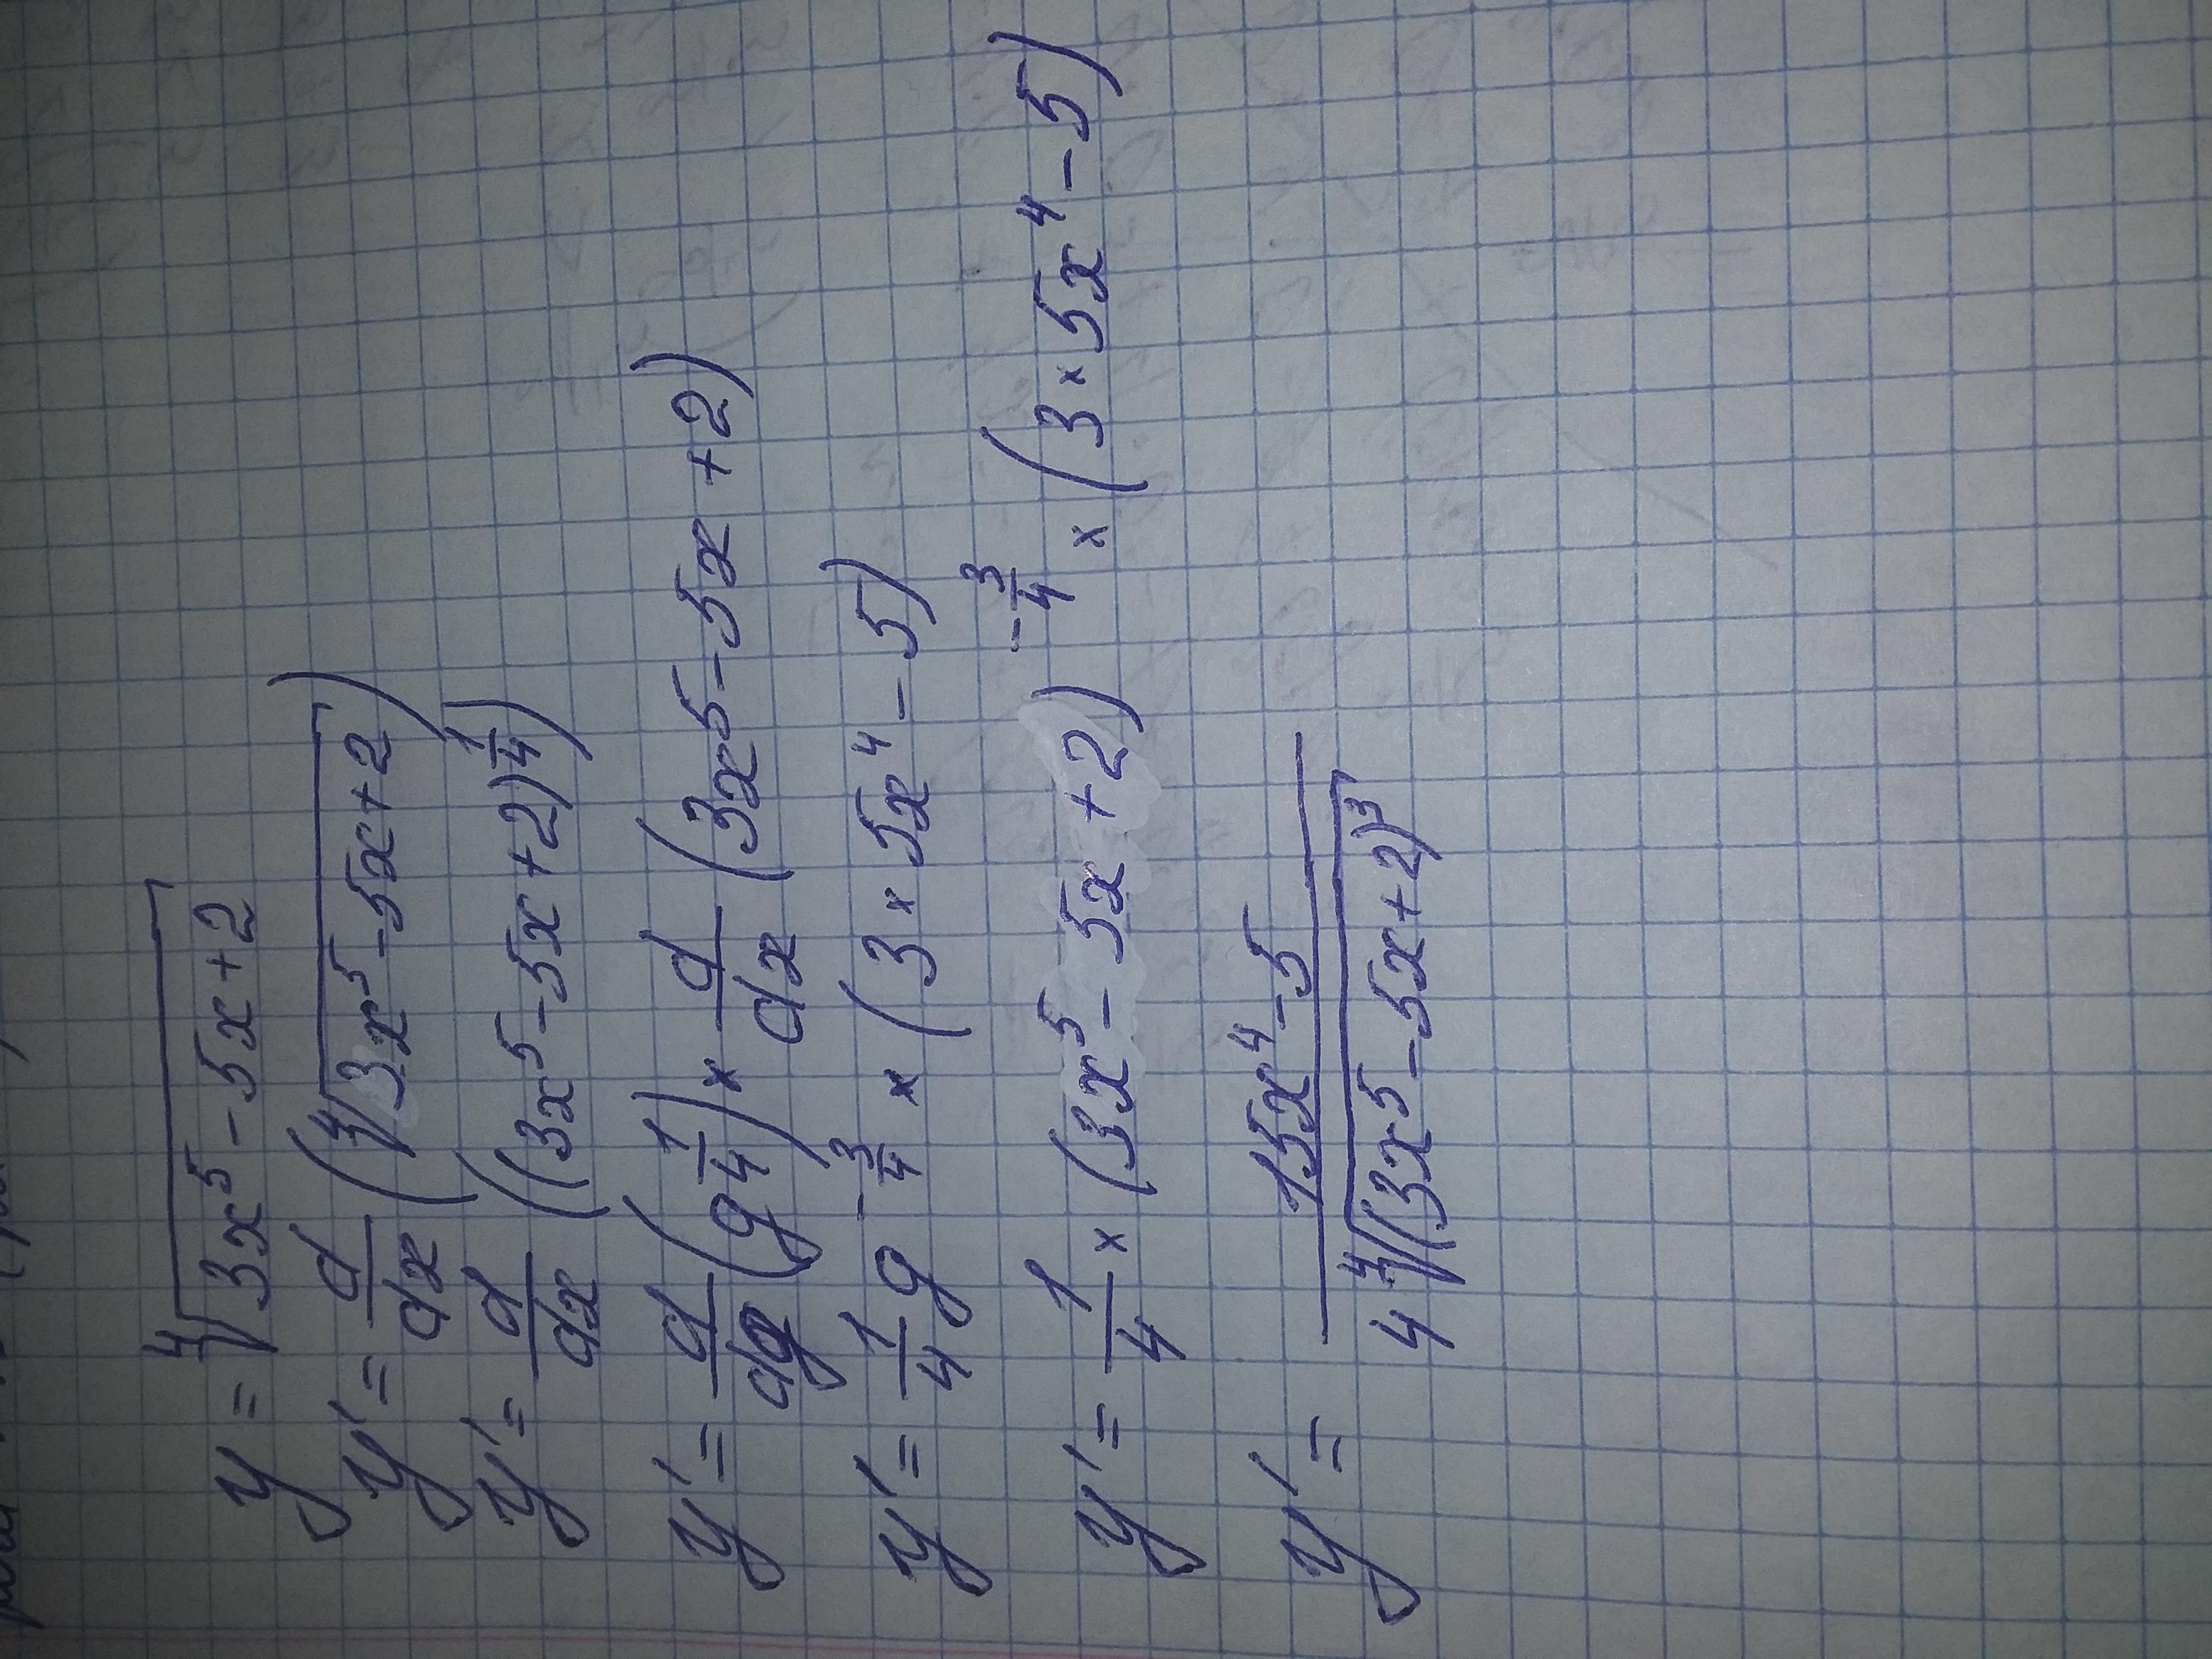 y = ∜(3x⁵ - 5x + 2)
y' = d/dx (∜(3x⁵ - 5x + 2))
y' = d/dx ((3x⁵ - 5x + 2)^(1/4))
y' = d/dg (g^(1/4)) × d/dx (3x⁵ - 5x + 2)
y' = 1/4 g^(-3/4) × (3 × 5x⁴ - 5)
y' = 1/4 × (3x⁵ - 5x + 2)^(-3/4) × (3 × 5x⁴ - 5)
y' = (15x⁴ - 5)/(4∜((3x⁵ - 5x + 2)³))